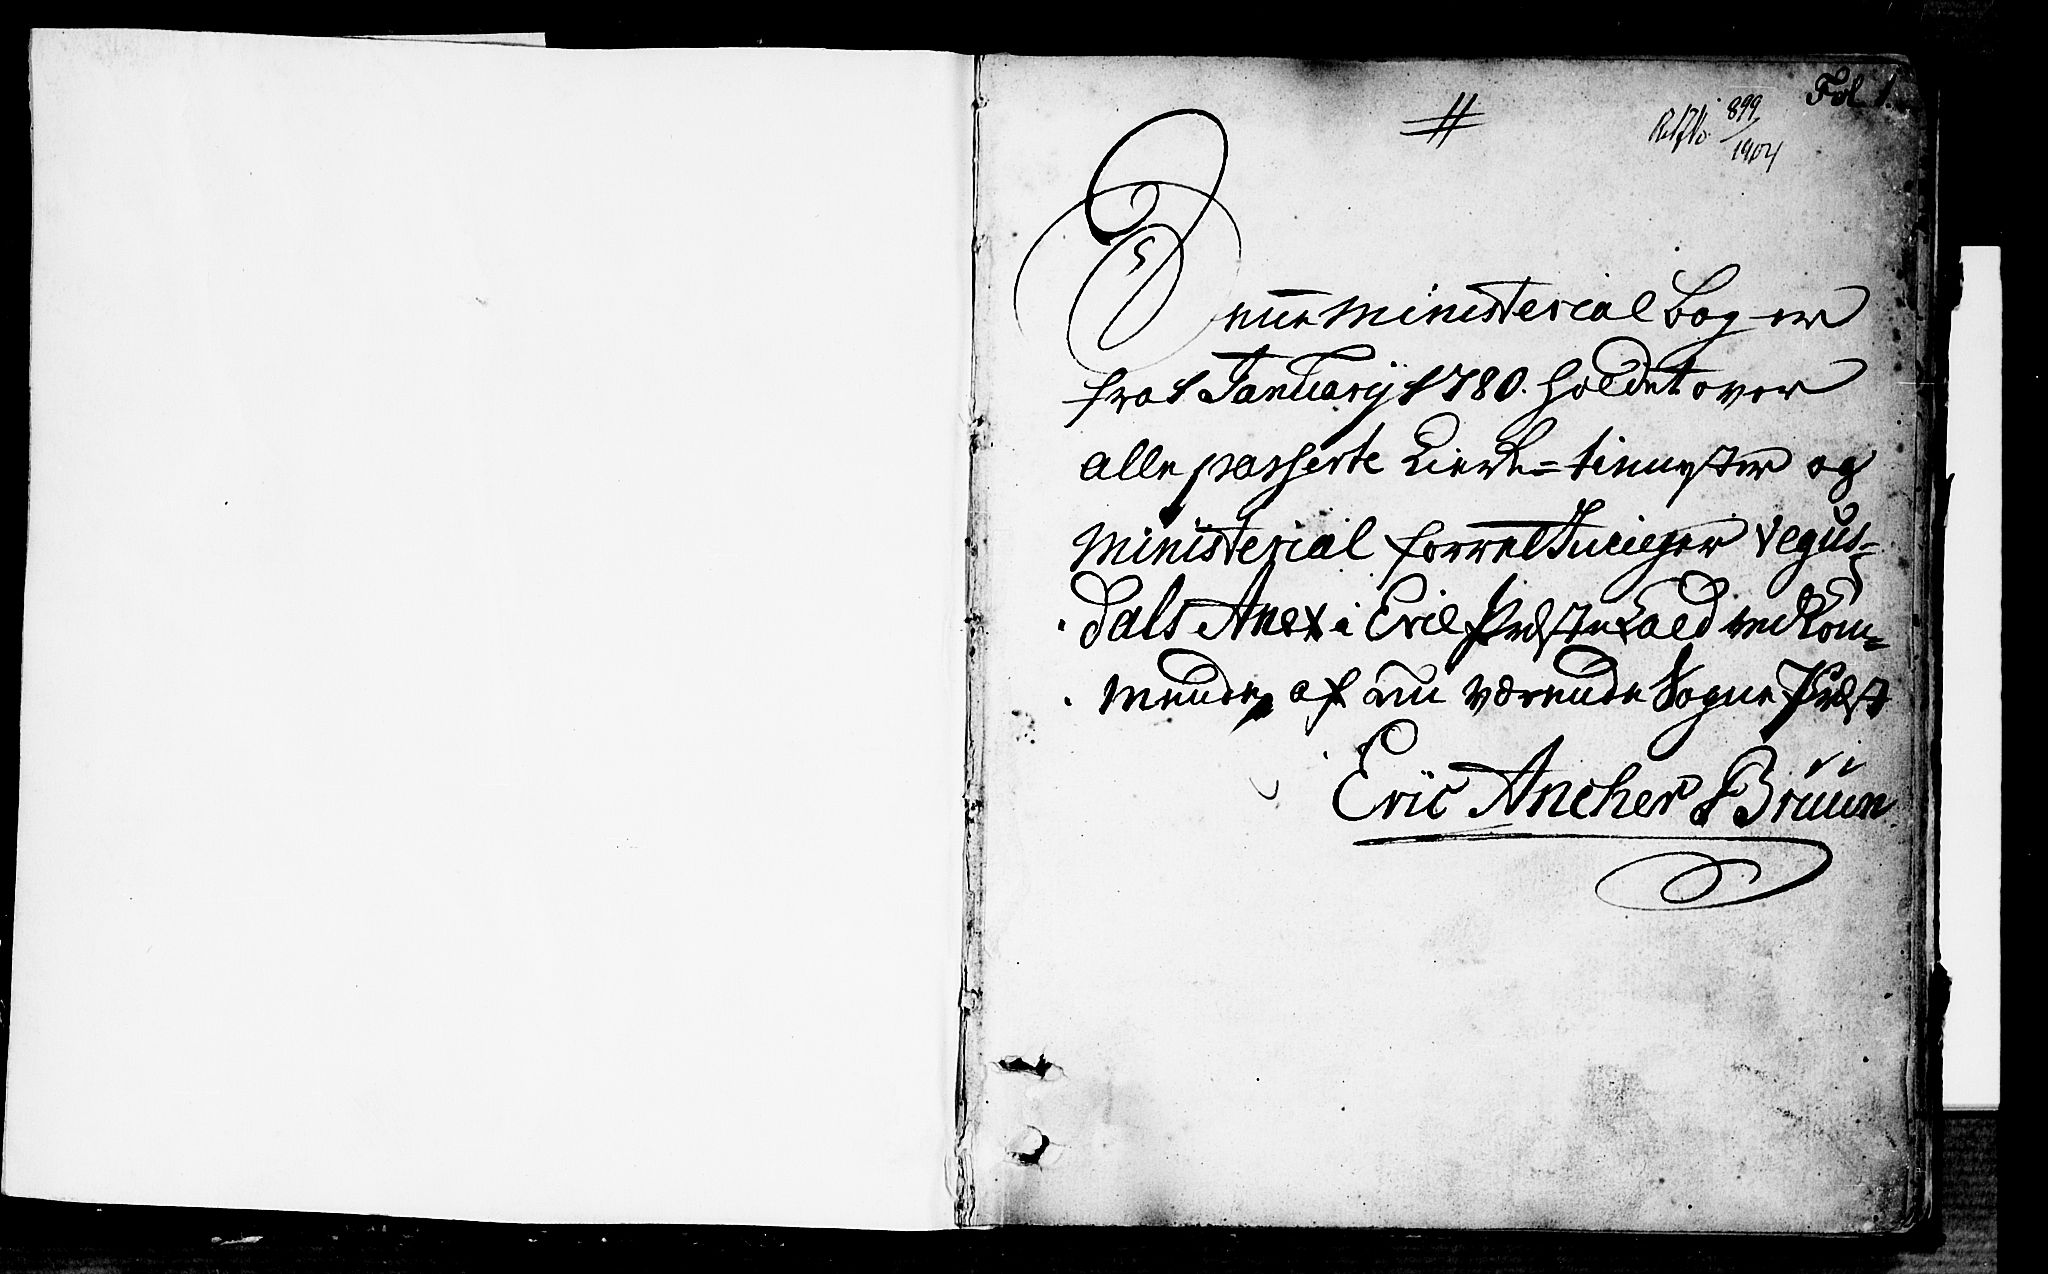 Fol 1.
899
1904
Denne Ministerial Bog er
fra 1 January 1780. holdet over
alle passerte Kierke=tienester og
Ministerial forretninger Vegus=
dals Anex i Evie Præste Kald vedkom=
mende, af nu værende Sogne Præst
Eric Ancher Brüün